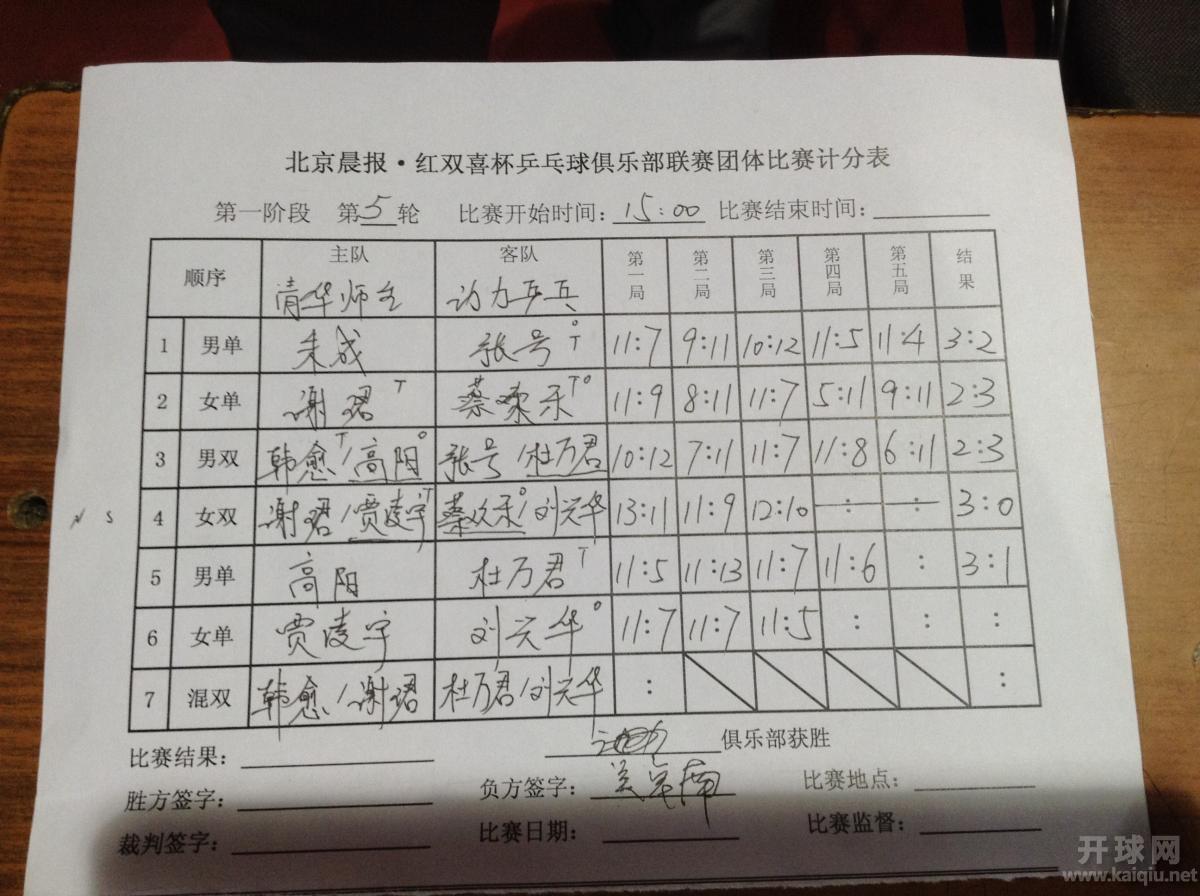 北京晨报·红双喜杯乒乓球俱乐部联赛团体比赛计分表
第一阶段 第5轮 比赛开始时间：15:00 比赛结束时间：
顺序 主队 客队 第一局 第二局 第三局 第四局 第五局 结果
清华师生 动力乒乓
1 男单 朱成 张号 T 11:7 9:11 10:12 11:5 11:4 3:2
2 女单 谢珺 T 蔡 T 11:9 8:11 11:7 5:11 9:11 2:3
3 男双 韩愈 T / 高阳 张号 / 杜万君 10:12 7:11 11:7 11:8 6:11 2:3
4 女双 谢珺 / 贾凌宇 T 蔡 / 刘元华 13:11 11:9 12:10 : : 3:0
5 男单 高阳 杜万君 T 11:5 11:13 11:7 11:6 : 3:1
6 女单 贾凌宇 刘元华 11:7 11:7 11:5 : : :
7 混双 韩愈 / 谢珺 杜万君 / 刘元华 : :
比赛结果： 俱乐部获胜
胜方签字： 负方签字： 比赛地点：
裁判签字： 比赛日期： 比赛监督：
开球网
www.kaiqiu.net